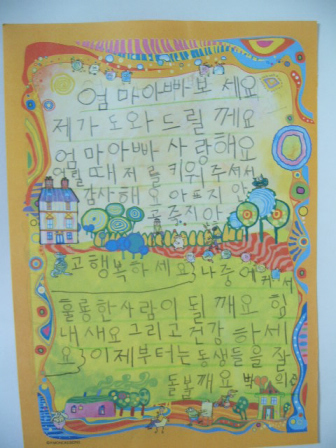 엄마아빠보세요
제가도와드릴께요
엄마아빠사랑해요
때저를키워주셔서
감사해요아프지안
고행복하세요?나중에커서
훌륭한사람이될께요힘
내새요그리고건강하세
요?이제부터는동생들을잘
돌봌께요